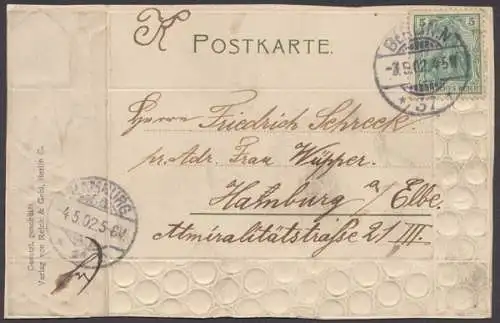 K
POSTKARTE.
5 5
BERLIN.N.
-3.5.02.4-5N.
* 37 *
Herrn Friedrich Schreck
pr. Adr. Frau Wüpper.
Hamburg a/Elbe.
Admiralitätstraße 21 III.
HAMBURG
4.5.02.5-6V.
Gesetzl. geschützt.
Verlag von Reich &
Berlin C.